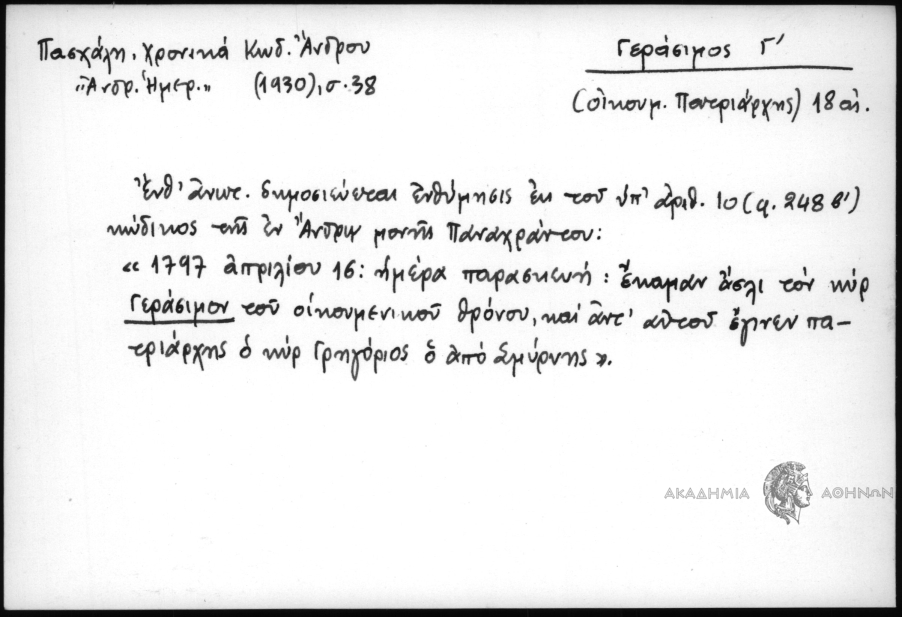 Πασχάλη, χρονικά Κωδ. Ἄνδρου
"Ἀνδρ. Ἡμερ." (1930), σ. 38
Γεράσιμος Γ'
(οἰκουμ. Πατριάρχης) 18 αἰ.
Ἔνθ' ἀνωτ. δημοσιεύεται ἐνθύμησις ἐκ τοῦ ὑπ' ἀριθ. 10 (φ. 248 β')
κώδικος τῆς ἐν Ἄνδρῳ μονῆς Παναχράντου:
« 1797 ἀπριλίου 16: ἡμέρα παρασκευή: ἔκαμαν ἄσλι τὸν κὺρ
Γεράσιμον τοῦ οἰκουμενικοῦ θρόνου, καὶ ἀντ' αὐτοῦ ἔγινεν πα-
τριάρχης ὁ κὺρ Γρηγόριος ὁ ἀπὸ Σμύρνης ».
ΑΚΑΔΗΜΙΑ ΑΘΗΝΩΝ